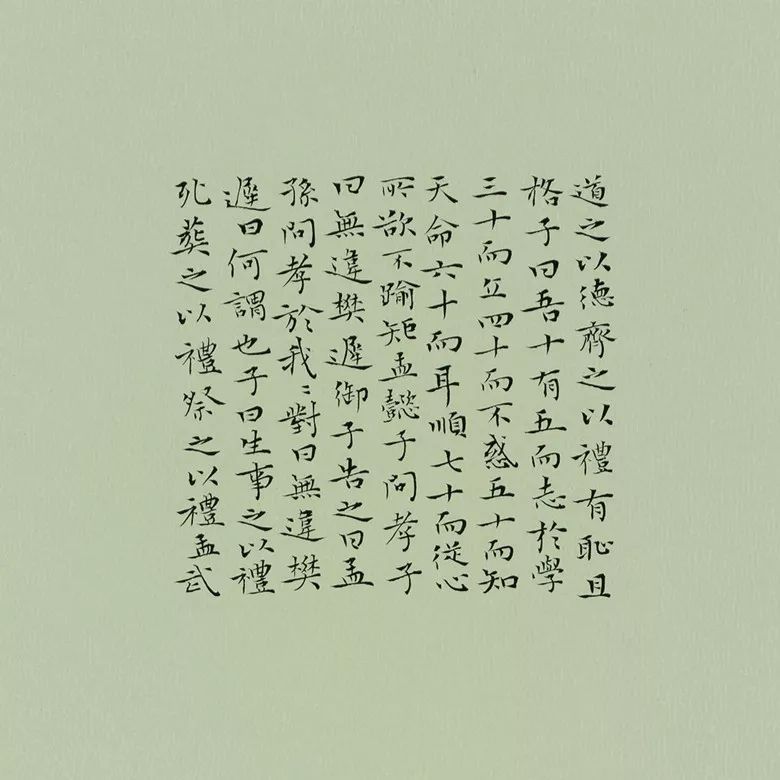 道之以德齊之以禮有恥且
格子曰吾十有五而志於學
三十而立四十而不惑五十而知
天命六十而耳順七十而從心
所欲不踰矩孟懿子問孝子
曰無違樊遲御子告之曰孟
孫問孝於我〻對曰無違樊
遲曰何謂也子曰生事之以禮
死葬之以禮祭之以禮孟武